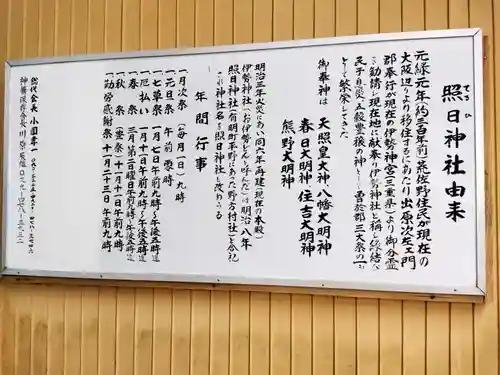 てるひ
照日神社由来
元緑元年(約三百年前)荒佐野住民が現在の
大阪辺りより移住するにあたり出原次左ェ門
郡奉行が現在の伊勢神宮(三重県)より御分霊
を勧請し現在地に献奉り伊勢神社と称し縁結び
五穀豊穣の神とし曽於郡三大祭の一つ
として繁栄してきた
御奉神は 天照皇大神・八幡大明神
春日大明神・住吉大明神
熊野大明神
明治三年火災にあい同六年再建(現在の本殿)
伊勢神社(お伊勢どんと呼んだ)は明治八年
照日神社(有明町平野にあった野方村社)を合祀
これ神社名を照日神社と改めうる
年間行事
一月次祭(毎月一日)九時
一元日祭 午前零時
一七草祭 一月七日午前九時~午後五時迄
一厄払い 一月十一日午前九時~午後五時迄
一春祭 三月第二日曜日午前九時~午後五時迄
一秋祭(霊祭)十一月十一日午前九時
一勤労感謝祭 十一月二十三日午前九時
総代会長 小園孝一
神舞保存会長